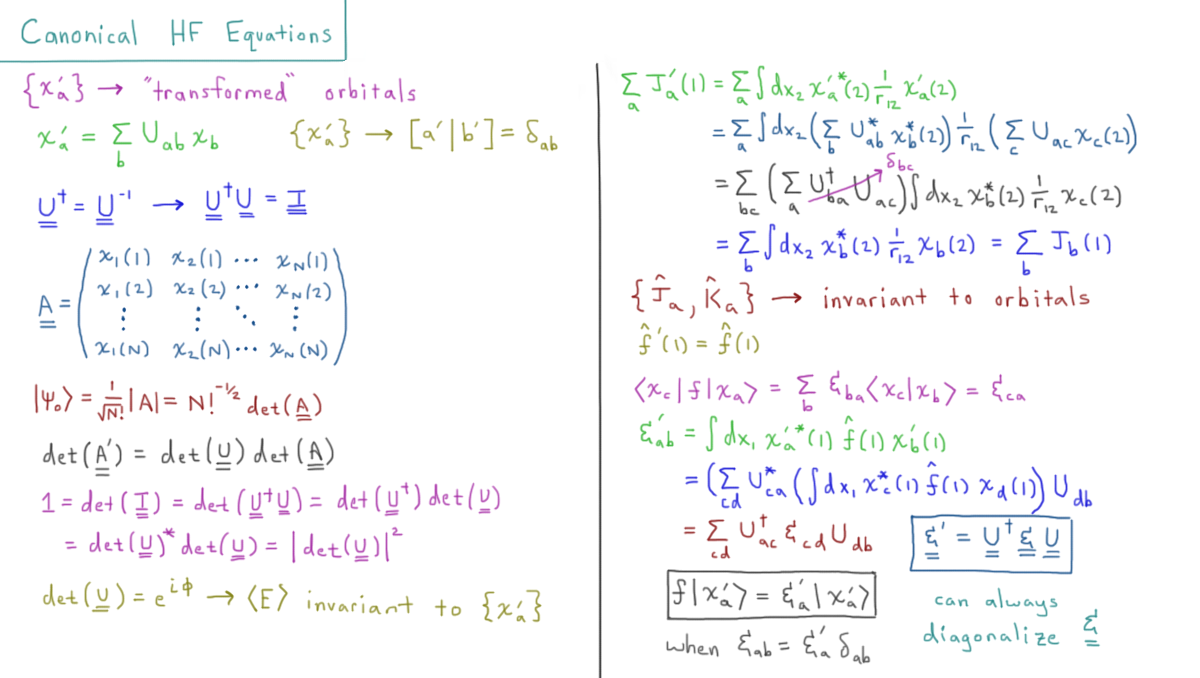 Canonical HF Equations
{χₐ′} → "transformed" orbitals
χₐ′ = Σ_b U_ab χ_b    {χₐ′} → [a′|b′] = δ_ab
U† = U⁻¹ → U†U = I
A = ( χ₁(1) χ₂(1) ⋯ χ_N(1)
χ₁(2) χ₂(2) ⋯ χ_N(2)
⋮ ⋮ ⋱ ⋮
χ₁(N) χ₂(N) ⋯ χ_N(N) )
|Ψ₀⟩ = 1/√N! |A| = N!^(-1/2) det(A)
det(A′) = det(U) det(A)
1 = det(I) = det(U†U) = det(U†) det(U)
= det(U)* det(U) = |det(U)|²
det(U) = e^(iϕ) → ⟨E⟩ invariant to {χₐ′}
Σ_a Jₐ′(1) = Σ_a ∫dx₂ χₐ′*(2) 1/r₁₂ χₐ′(2)
= Σ_a ∫dx₂ (Σ_b U*_ab χ_b*(2)) 1/r₁₂ (Σ_c U_ac χ_c(2))
= Σ_bc (Σ_a U†_ba U_ac) δ_bc ∫dx₂ χ_b*(2) 1/r₁₂ χ_c(2)
= Σ_b ∫dx₂ χ_b*(2) 1/r₁₂ χ_b(2) = Σ_b J_b(1)
{Ĵₐ, K̂ₐ} → invariant to orbitals
f̂′(1) = f̂(1)
⟨χ_c|f|χₐ⟩ = Σ_b ε_ba ⟨χ_c|χ_b⟩ = ε_ca
ε′_ab = ∫dx₁ χₐ′*(1) f̂(1) χ_b′(1)
= (Σ_cd U*_ca (∫dx₁ χ_c*(1) f̂(1) χ_d(1)) U_db
= Σ_cd U†_ac ε_cd U_db
ε′ = U† ε U
f|χₐ′⟩ = εₐ′|χₐ′⟩
when ε_ab = εₐ′ δ_ab
can always
diagonalize ε